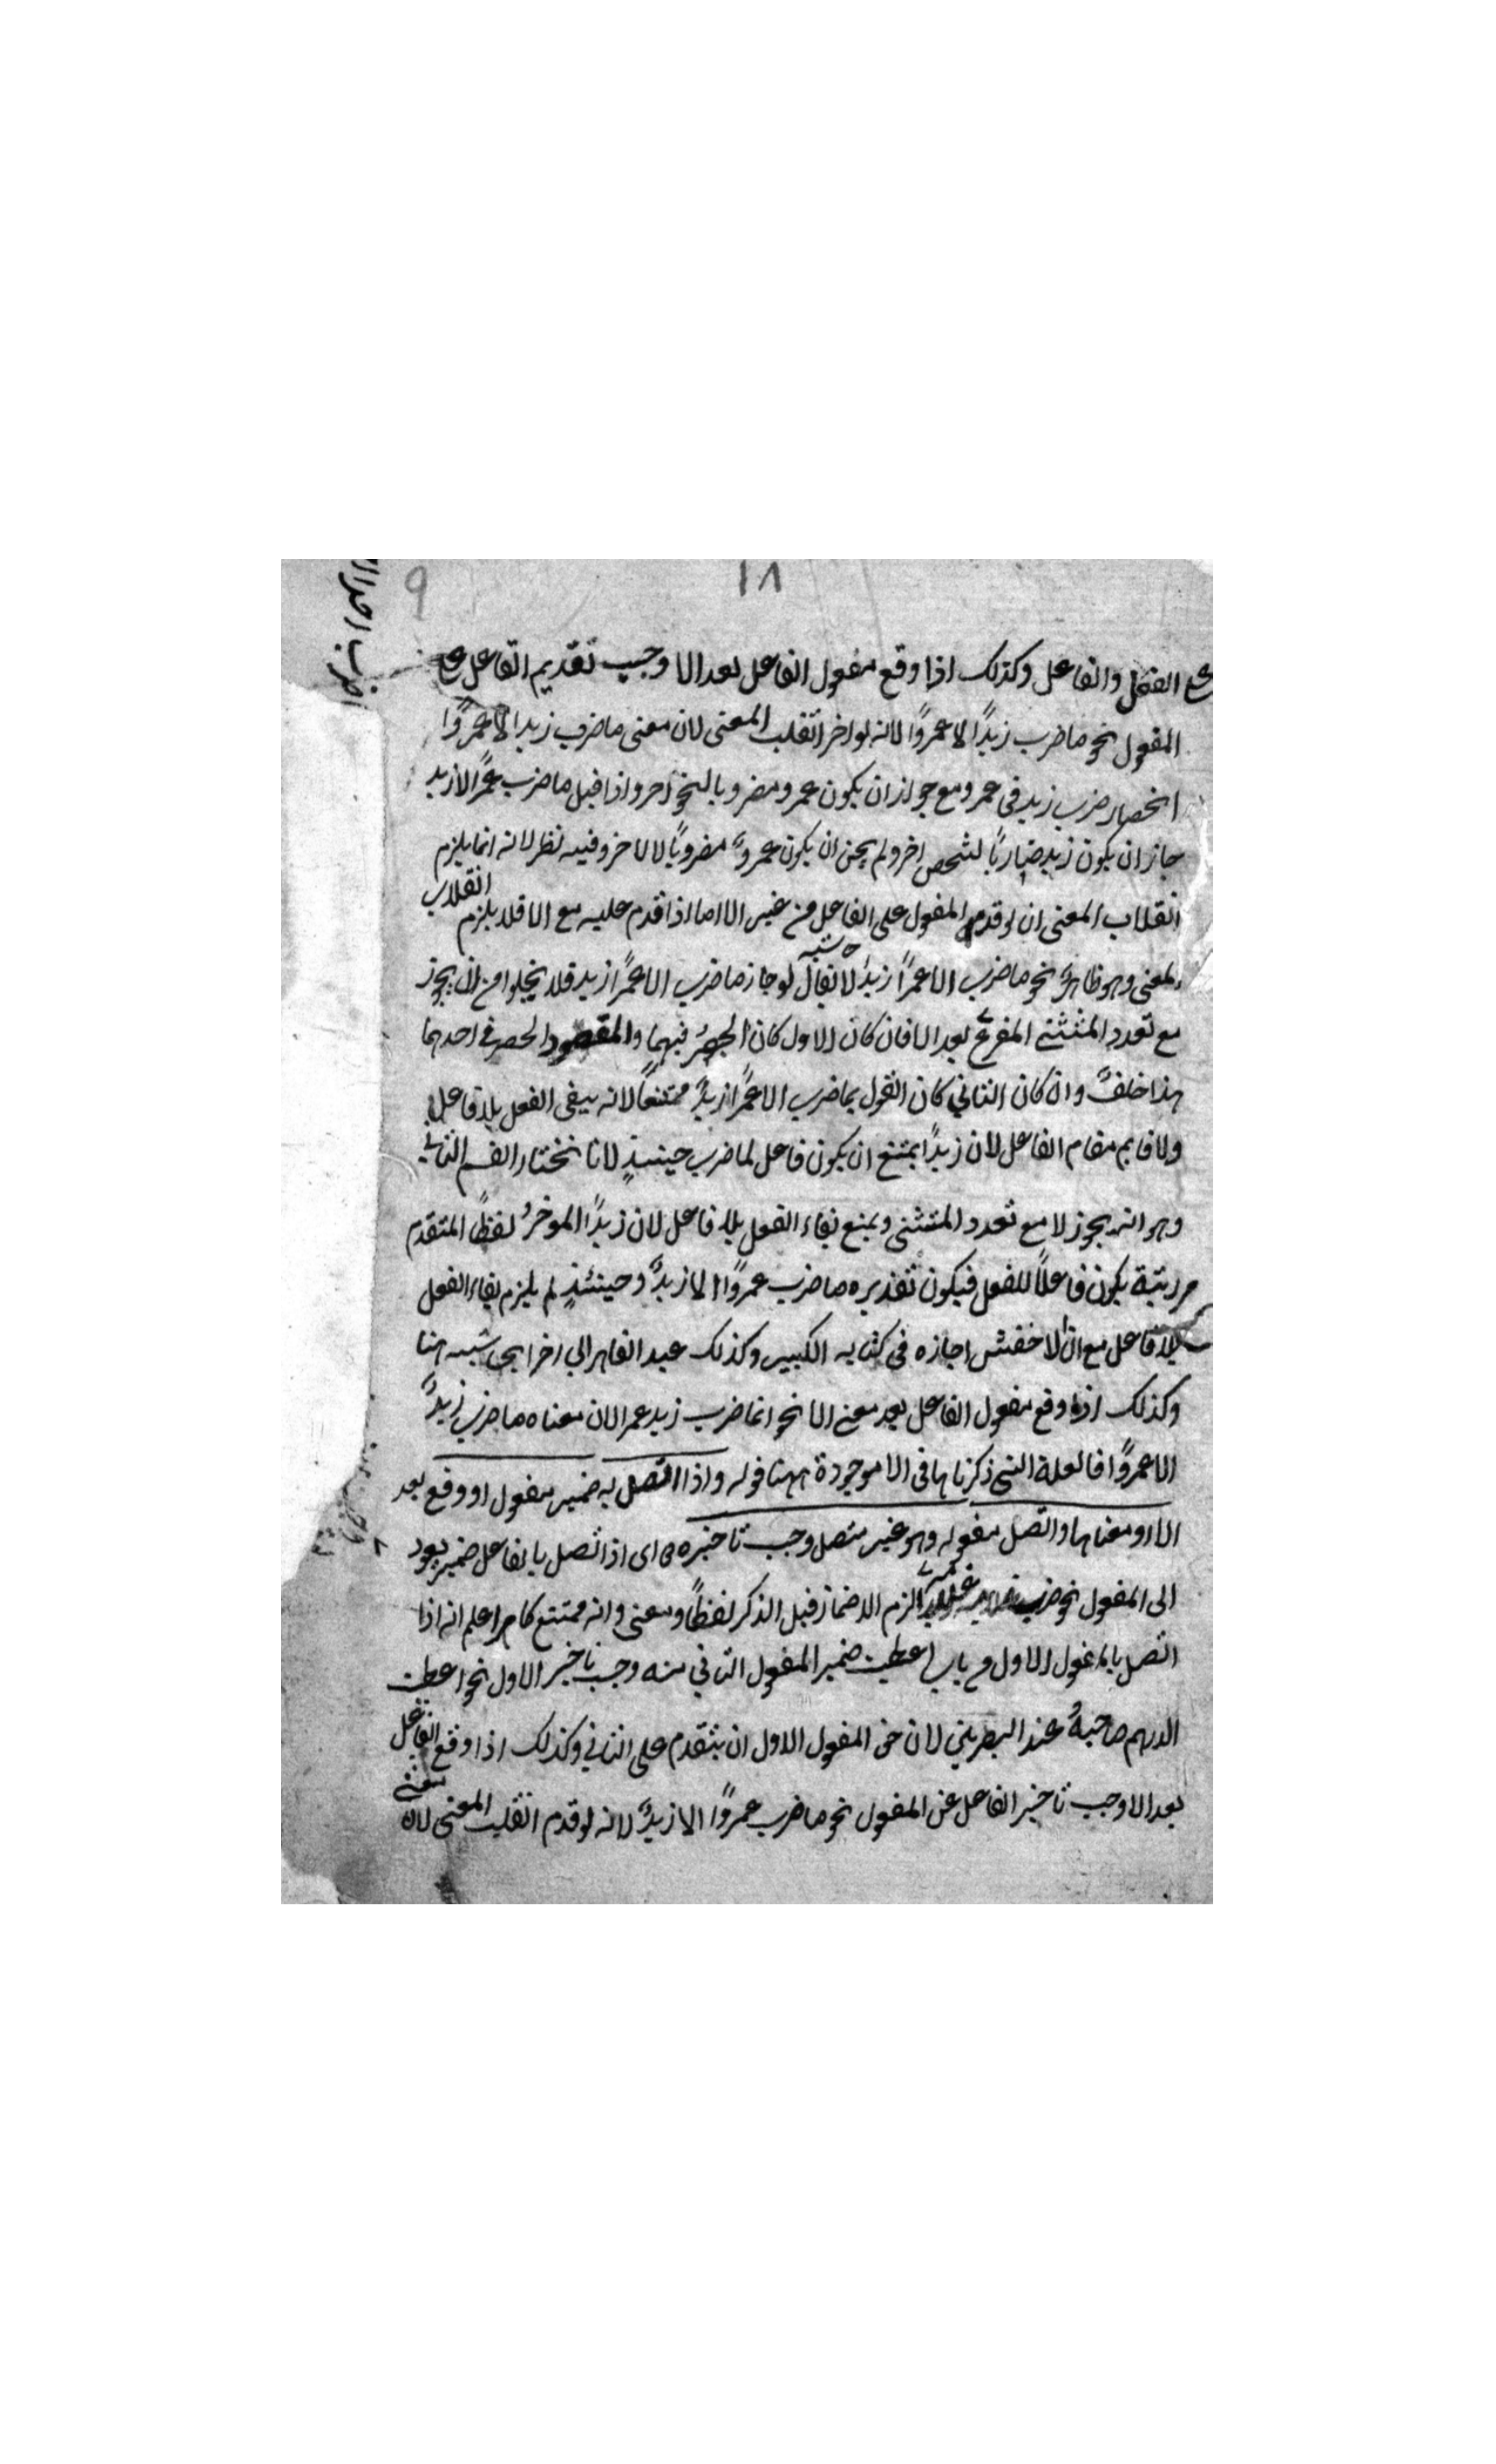 ١٨
9
الفعل والفاعل وكذلك اذا وقع مفعول الفاعل بعد الا وجب تقديم الفاعل على
المفعول نحو ما ضرب زيدًا الا عمروًا لانه لو اخر انقلب المعنى لان معنى ما ضرب زيد الا عمروًا
انحصار ضرب زيد فى عمرو مع جواز ان يكون عمرو مضروبا لنحو آخر واذا قيل ما ضرب عمرًا الا زيد
جاز ان يكون زيد ضاربًا لشخص اخر ولم يجز ان يكون عمروً مضروبًا لالاخر وفيه نظر لانه انما يلزم
انقلاب المعنى ان لو قدم المفعول على الفاعل من غير الا اما اذا قدم عليه مع الا فلا يلزم انقلاب
المعنى وهو ظاهرٌ نحو ما ضرب الا عمرًا زيدٌ لا يقال لو جاز ما ضرب الا عمرًا زيد فلا يخلوا من ان يجوز
مع تعدد المثتثنى المفرغ بعد الا فان كان الاول كان الحصرُ فيهما والمقصود الحصر فى احدهما
هذا خلفٌ وان كان الثاني كان القول بما ضرب الا عمرًا زيدٌ ممتنعًا لانه يبقى الفعل بلا فاعل
ولا قايم مقام الفاعل لان زيدًا يمتنع ان يكون فاعل لما ضرب حينئذٍ لانا نختار القسم الثانى
وهو انه يجوز لا مع تعدد المتثنى ويمنع بقاء الفعل بلا فاعل لان زيدًا الموخرُ لفظًا المتقدم
رتبة يكون فاعلًا للفعل فيكون تقديره ما ضرب عمروًا الا زيدٌ وحينئذٍ لم يلزم بقاء الفعل
بلا فاعل مع ان الاخفش اجازه فى كتابه الكبير وكذلك عبد القاهر الى اخر ابحى شبه هنا
وكذلك اذا وقع مفعول الفاعل بعد معنى الا نحو انما ضرب زيد عمرا لان معناه ما ضرب زيدٌ
الا عمروًا فالعلة التى ذكرناها فى الا موجودة ههنا قوله واذا اتصل به ضمير مفعول او وقع بعد
الا او معناها واتصل مفعوله وهو غير متصل وجب تاخيره اى اذا تصل بالفاعل ضمير يعود
الى المفعول نحو ضرب لزم الاضمار قبل الذكر لفظًا ومعنى وانه ممتنع كما مر اعلم انه اذا
اتصل بالمغول الاول فى باب اعطيت ضمير المفعول الثانى منه وجب تاخير الاول نحو اعطيت
الدرهم صاحبهُ عند البصريني لان حق المفعول الاول ان يتقدم على الثانى وكذلك اذا وقع الفاعل
بعد الا وجب تاخير الفاعل عن المفعول نحو ما ضرب عمروًا الا زيدٌ لانه لو قدم انقلب المعنى لان معنى